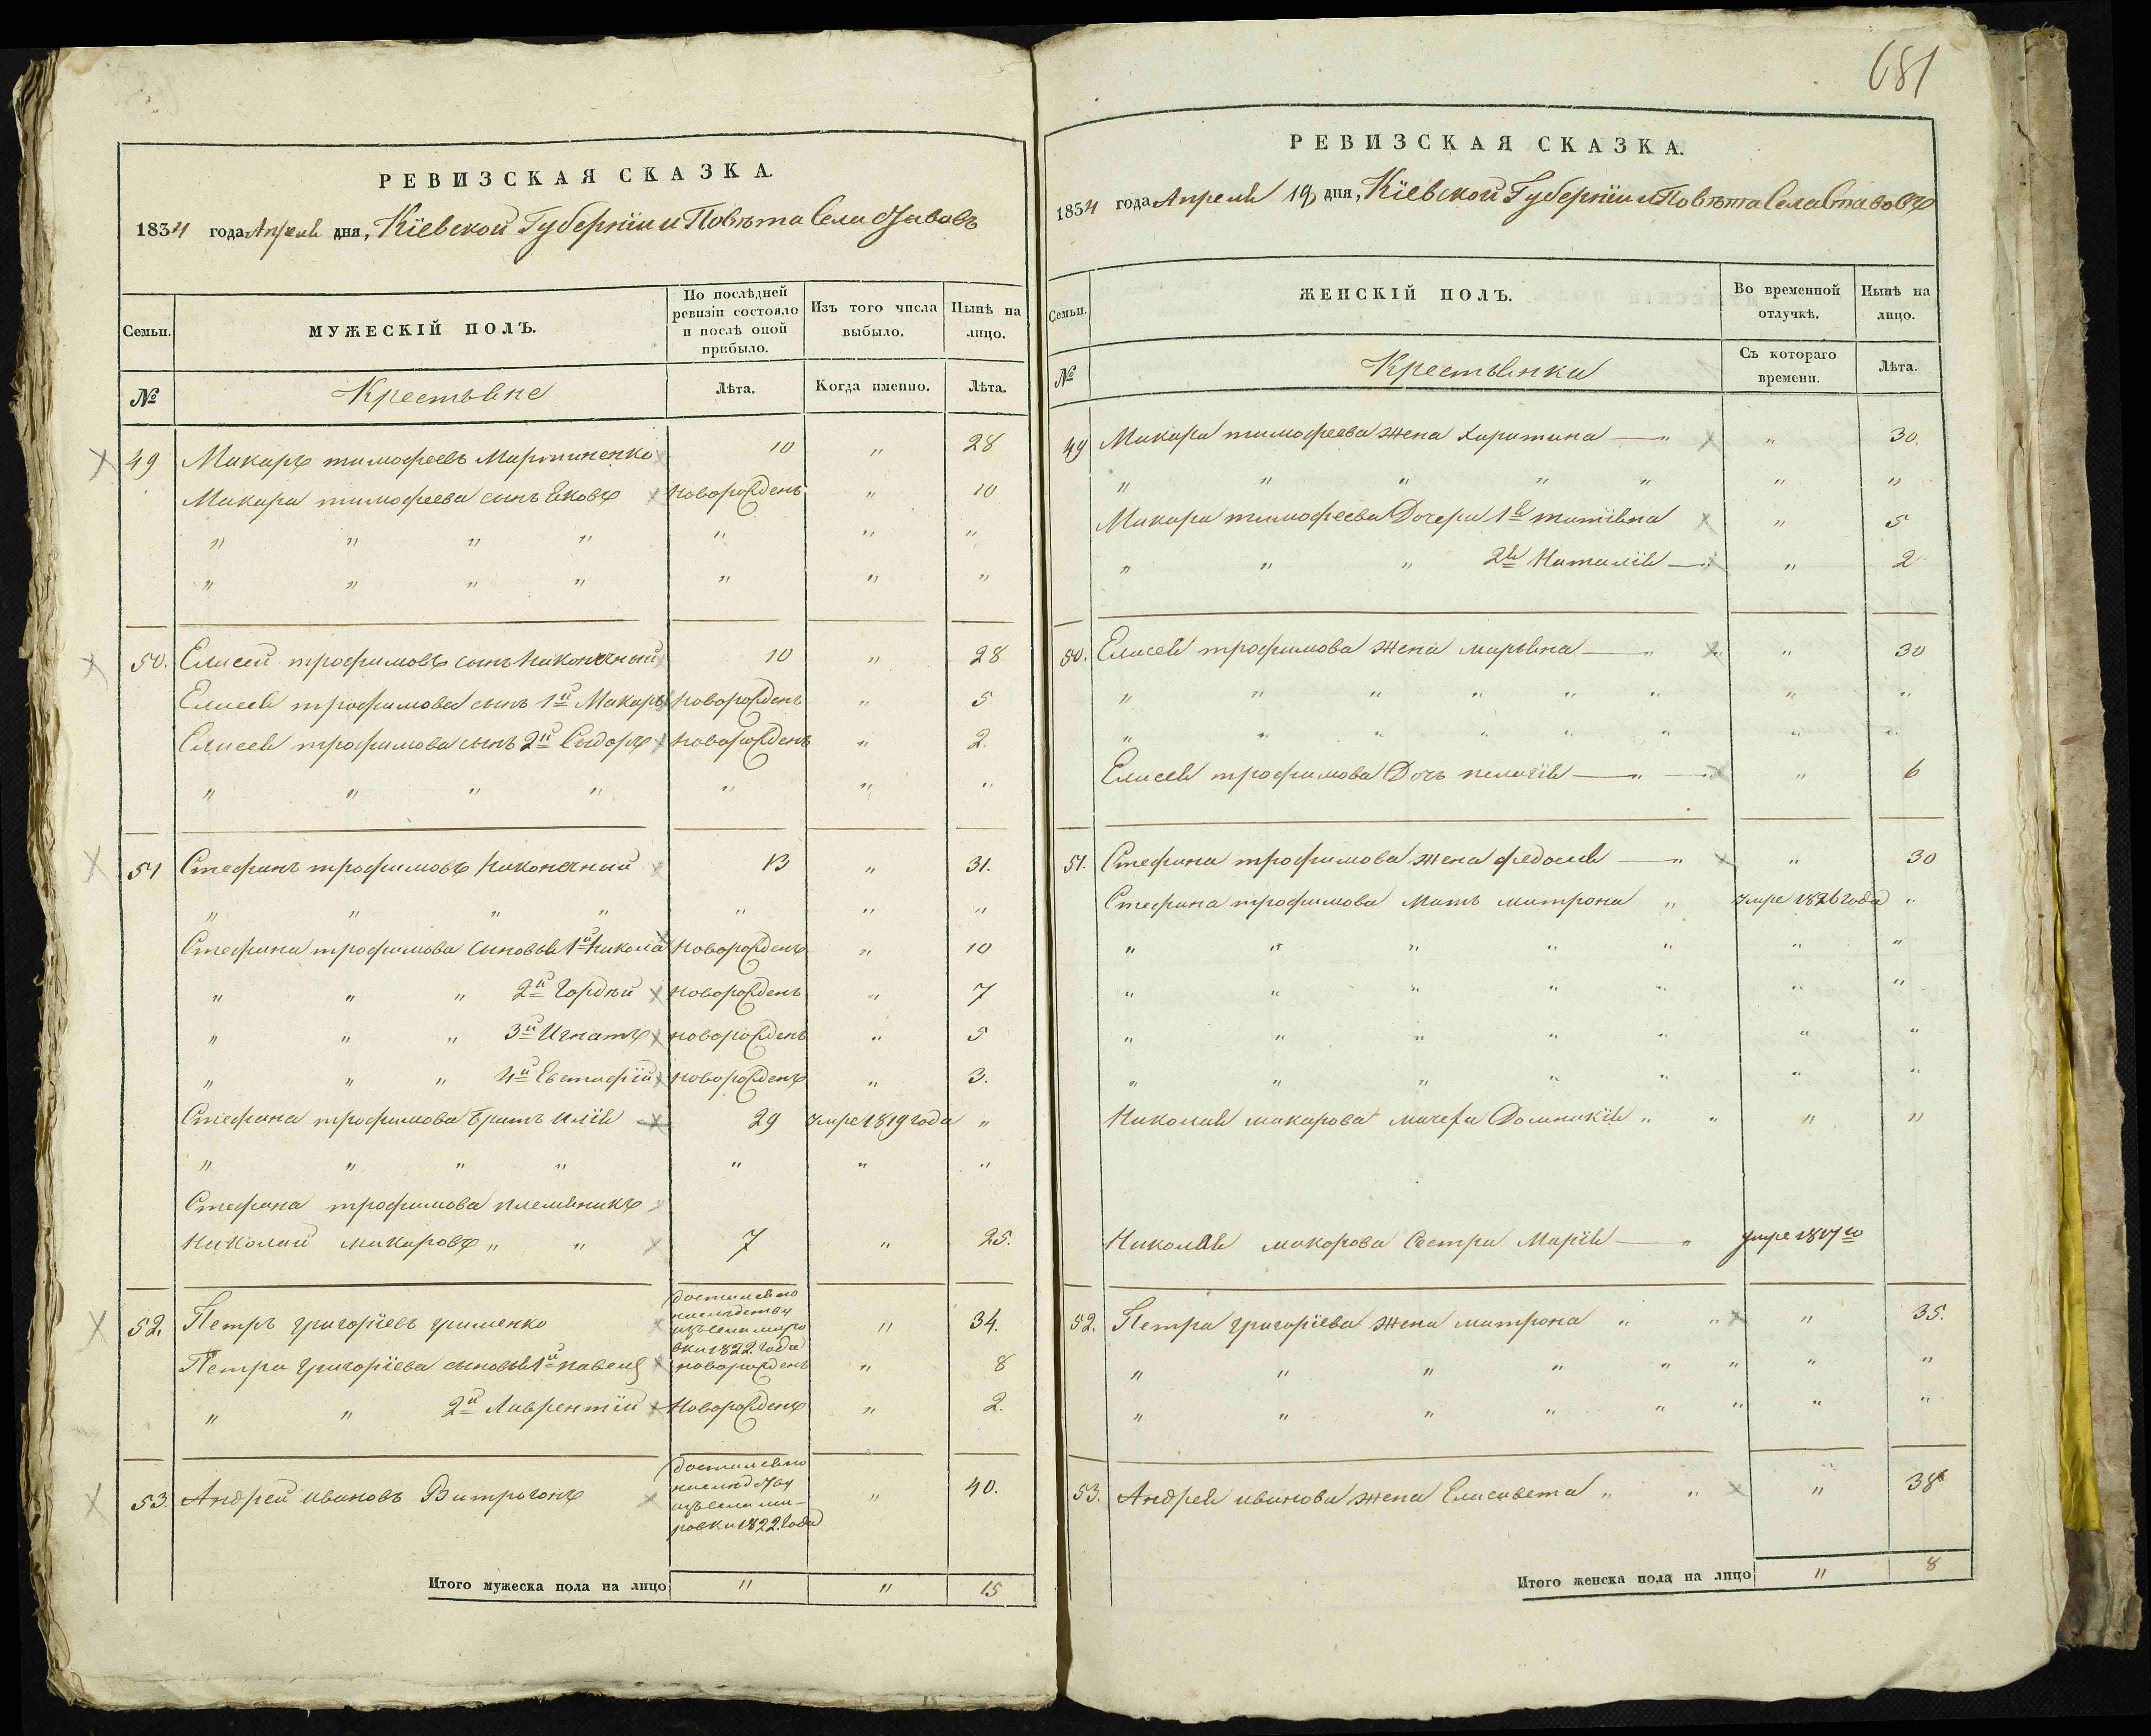 681
РЕВИЗСКАЯ СКАЗКА.
1834 года Апреля дня, Кіевской Губерніи и Повѣта Села Ставовъ
Семьи.
МУЖЕСКІЙ ПОЛЪ.
По послѣдней ревизіи состояло и послѣ оной прибыло.
Изъ того числа выбыло.
Нынѣ на лицо.
№
Крестьяне
Лѣта.
Когда именно.
Лѣта.
49 Макаръ тимофеевъ Мартиненко 10 " 28
Макара тимофеева сынъ Яковъ новорожденъ " 10
" " " " " " "
" " " " " " "
50. Елисей трофимовъ сынъ Наконечный 10 " 28
Елисея трофимова сынъ 1й Макаръ новорожденъ " 5
Елисея трофимова сынъ 2й Сидоръ новорожденъ " 2.
" " " " " " "
51 Стефанъ трофимовъ Наконечний 13 " 31.
" " " " " " "
Стефана трофимова сыновья 1й Никола новорожденъ " 10
" " " 2й Гордѣй новорожденъ " 7
" " " 3й Игнатъ новорожденъ " 5
" " " 4й Евстафій новорожденъ " 3.
Стефана трофимова братъ Илія 29 умре 1819 года "
" " " " " " "
Стефана трофимова племяникъ
Николай макаровъ " " 7 " 25.
52. Петръ григоріевъ гриценко достался по наслѣдству изъ села мировки 1822 года " 34.
Петра григоріева сыновья 1й павелъ новорожденъ " 8
" " 2й Лаврентій новорожденъ " 2.
53. Андрей ивановъ Витрогонъ достался по наслѣдству изъ села мировки 1822 года " 40.
Итого мужеска пола на лицо " " 15
РЕВИЗСКАЯ СКАЗКА.
1834 года Апреля 19 дня, Кіевской Губерніи и Повѣта Села Ставовъ
Семьи.
ЖЕНСКІЙ ПОЛЪ.
Во временной отлучкѣ.
Нынѣ на лицо.
№
Крестьянки
Съ котораго времени.
Лѣта.
49 Макара тимофеева жена Харитина " " 30.
" " " " " " "
Макара тимофеева Дочери 1я татіяна " 5
" " " 2я Наталія " 2
50. Елисея трофимова жена марьяна " " 30
" " " " " " " "
" " " " " " " "
Елисея трофимова Дочь пелагія " " 6
51. Стефана трофимова жена федосия " " 30
Стефана трофимова мать матрона " умре 1826 года "
" " " " " " "
" " " " " " "
" " " " " " "
" " " " " " "
Николая макарова мачеха Домникія " " " "
Николая макорова Сестра Марія " умре 1817го
52. Петра григоріева жена матрона " " " 35.
" " " " " " " "
" " " " " " " "
53. Андрея иванова жена Елисавета " " " 38
Итого женска пола на лицо " 8